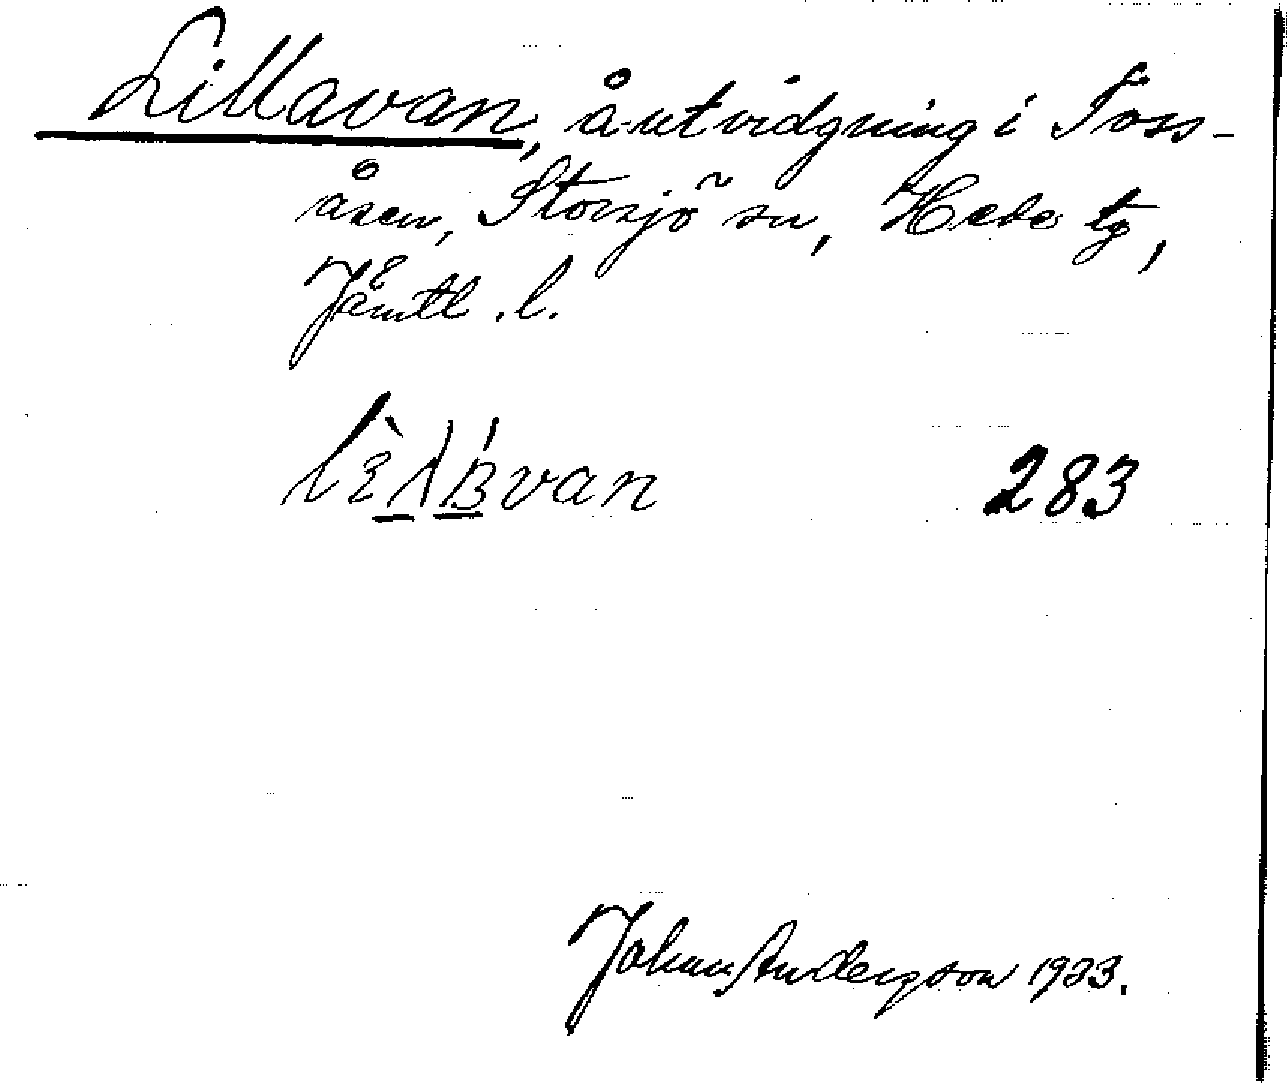 Lillavan, åutvidgning i Foss-
åsen, Storsjö sn, Hede tg,
Jämtl. l.
283
Johan Anderson 1923.